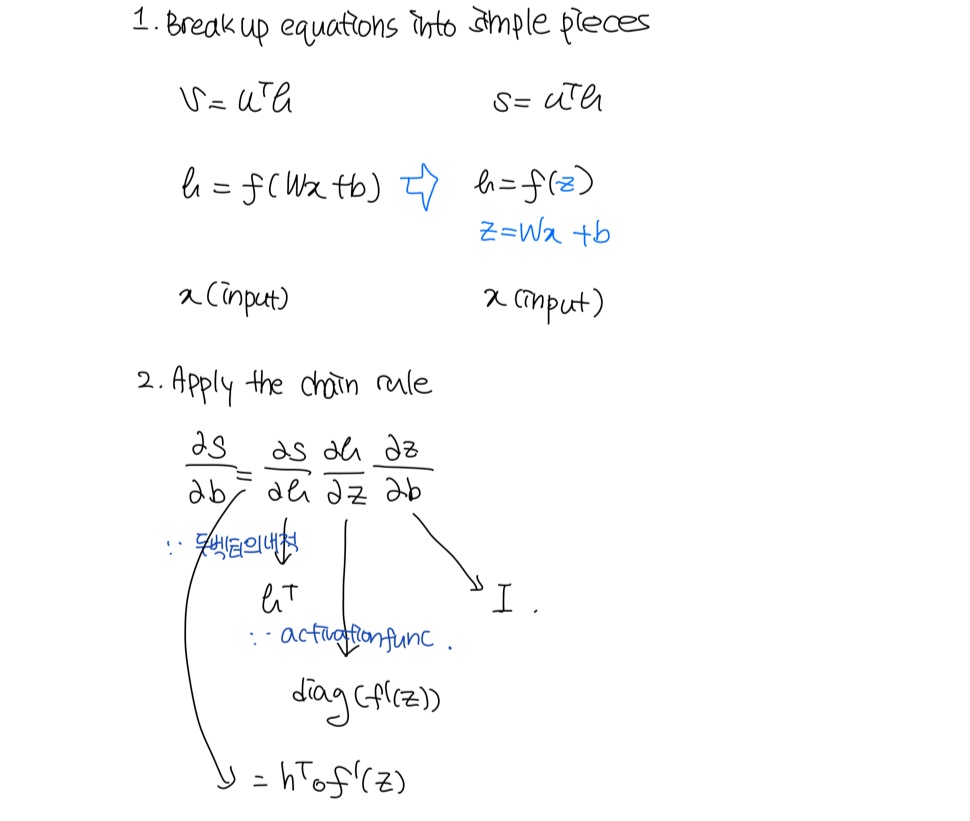 1. Break up equations into simple pieces
V = uᵀh s = uᵀh
h = f(Wx + b) ⇨ h = f(z)
z = Wx + b
x (input) x (input)
2. Apply the chain rule
∂s/∂b = ∂s/∂h ∂h/∂z ∂z/∂b
∵ 두벡터의내적
hᵀ I .
∵ activation func .
diag(f'(z))
= hᵀ∘f'(z)